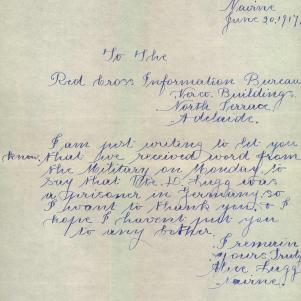 Nairne
June 20. 1917.
To The
Red Cross Information Bureau
Verco Buildings.
North Terrace
Adelaide.
I am just writing to let you
know. that we received word from
the Military on Monday to
say that Pte. D. Fugg was
a prisoner in Germany so
I want to thank you, & I
hope I havent put you
to any bother.
I remain
yours Truly
Alice Fugg
Nairne.